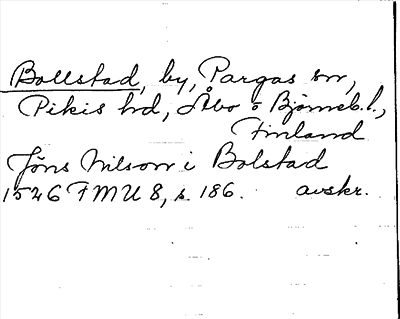 Bollstad, by, Pargas sn,
Pikis hd, Åbo o Björneb. l.,
Finland
Jöns Nilsson i Bolstad
1546 FMU 8, s. 186. avskr.